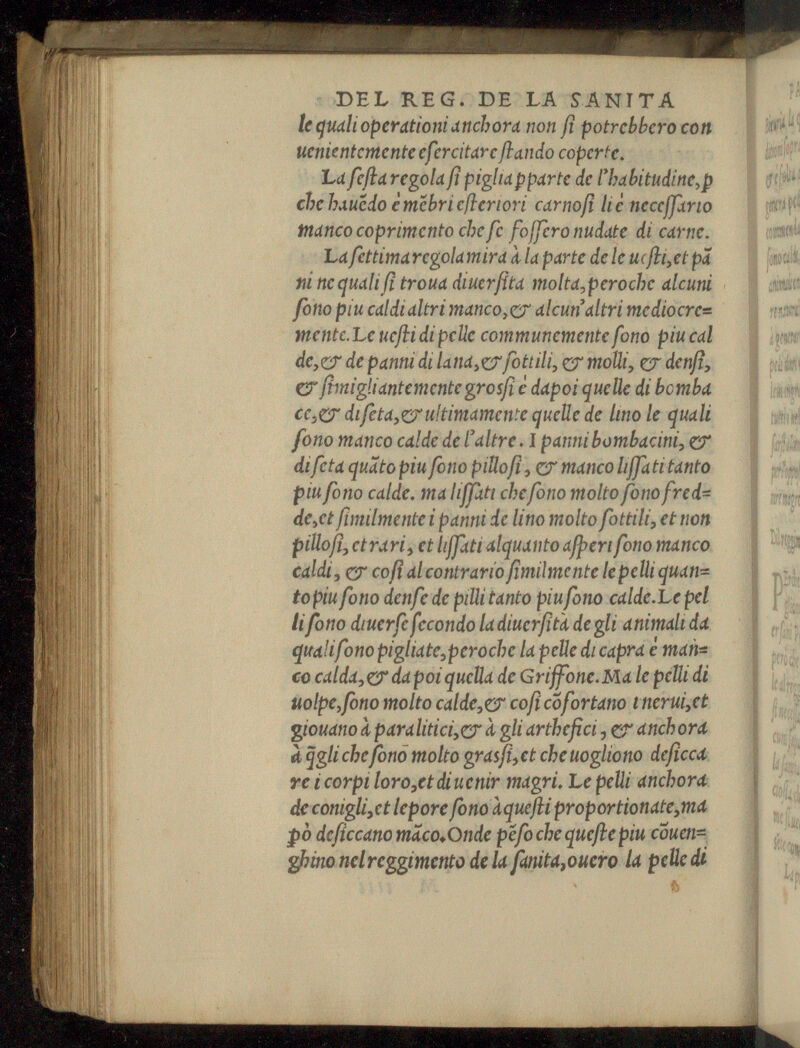 DEL REG. DE LA SANITA
le quali operationi anchora non ſi potrebbero con
uenientemente eſercitare ſtando coperte.
La ſeſta regola ſi piglia p parte de l'habitudine, p
che hauēdo e mēbri eſteriori carnoſi li é neceſſario
manco coprimento che ſe foſſero nudate di carne.
La ſettima regola mira à la parte de le ueſti, et pā
ni ne quali ſi troua diuerſita molta, peroche alcuni
ſono piu caldi altri manco, & alcun'altri mediocre=
mente. Le ueſti di pelle communemente ſono piu cal
de, & de panni di lana, & ſottili, & molli, & denſi,
& ſimigliantemente grosſi é dapoi quelle di bomba
ce, & di ſeta, & ultimamente quelle de lino le quali
ſono manco calde de l'altre. I panni bombacini, &
di ſeta quāto piu ſono pilloſi, & manco liſſati tanto
piu ſono calde. ma liſſati che ſono molto ſono fred=
de, et ſimilmente i panni de lino molto ſottili, et non
pilloſi, et rari, et liſſati alquanto aſperi ſono manco
caldi, & coſi al contrario ſimilmente le pelli quan=
to piu ſono denſe de pilli tanto piu ſono calde. Le pel
li ſono diuerſe ſecondo la diuerſità de gli animali da
quali ſono pigliate, peroche la pelle di capra é man=
co calda, & da poi quella de Griffone. Ma le pelli di
uolpe, ſono molto calde, & coſi cōfortano i nerui, et
giouano à paralitici, & à gli artheſici, & anchora
à q̃gli che ſono molto grasſi, et che uogliono deſicca
re i corpi loro, et di uenir magri. Le pelli anchora
de conigli, et lepore ſono à queſti proportionate, ma
pò deſiccano māco. Onde pēſo che queſte piu cōuen=
ghino nel reggimento de la ſanita, ouero la pelle di